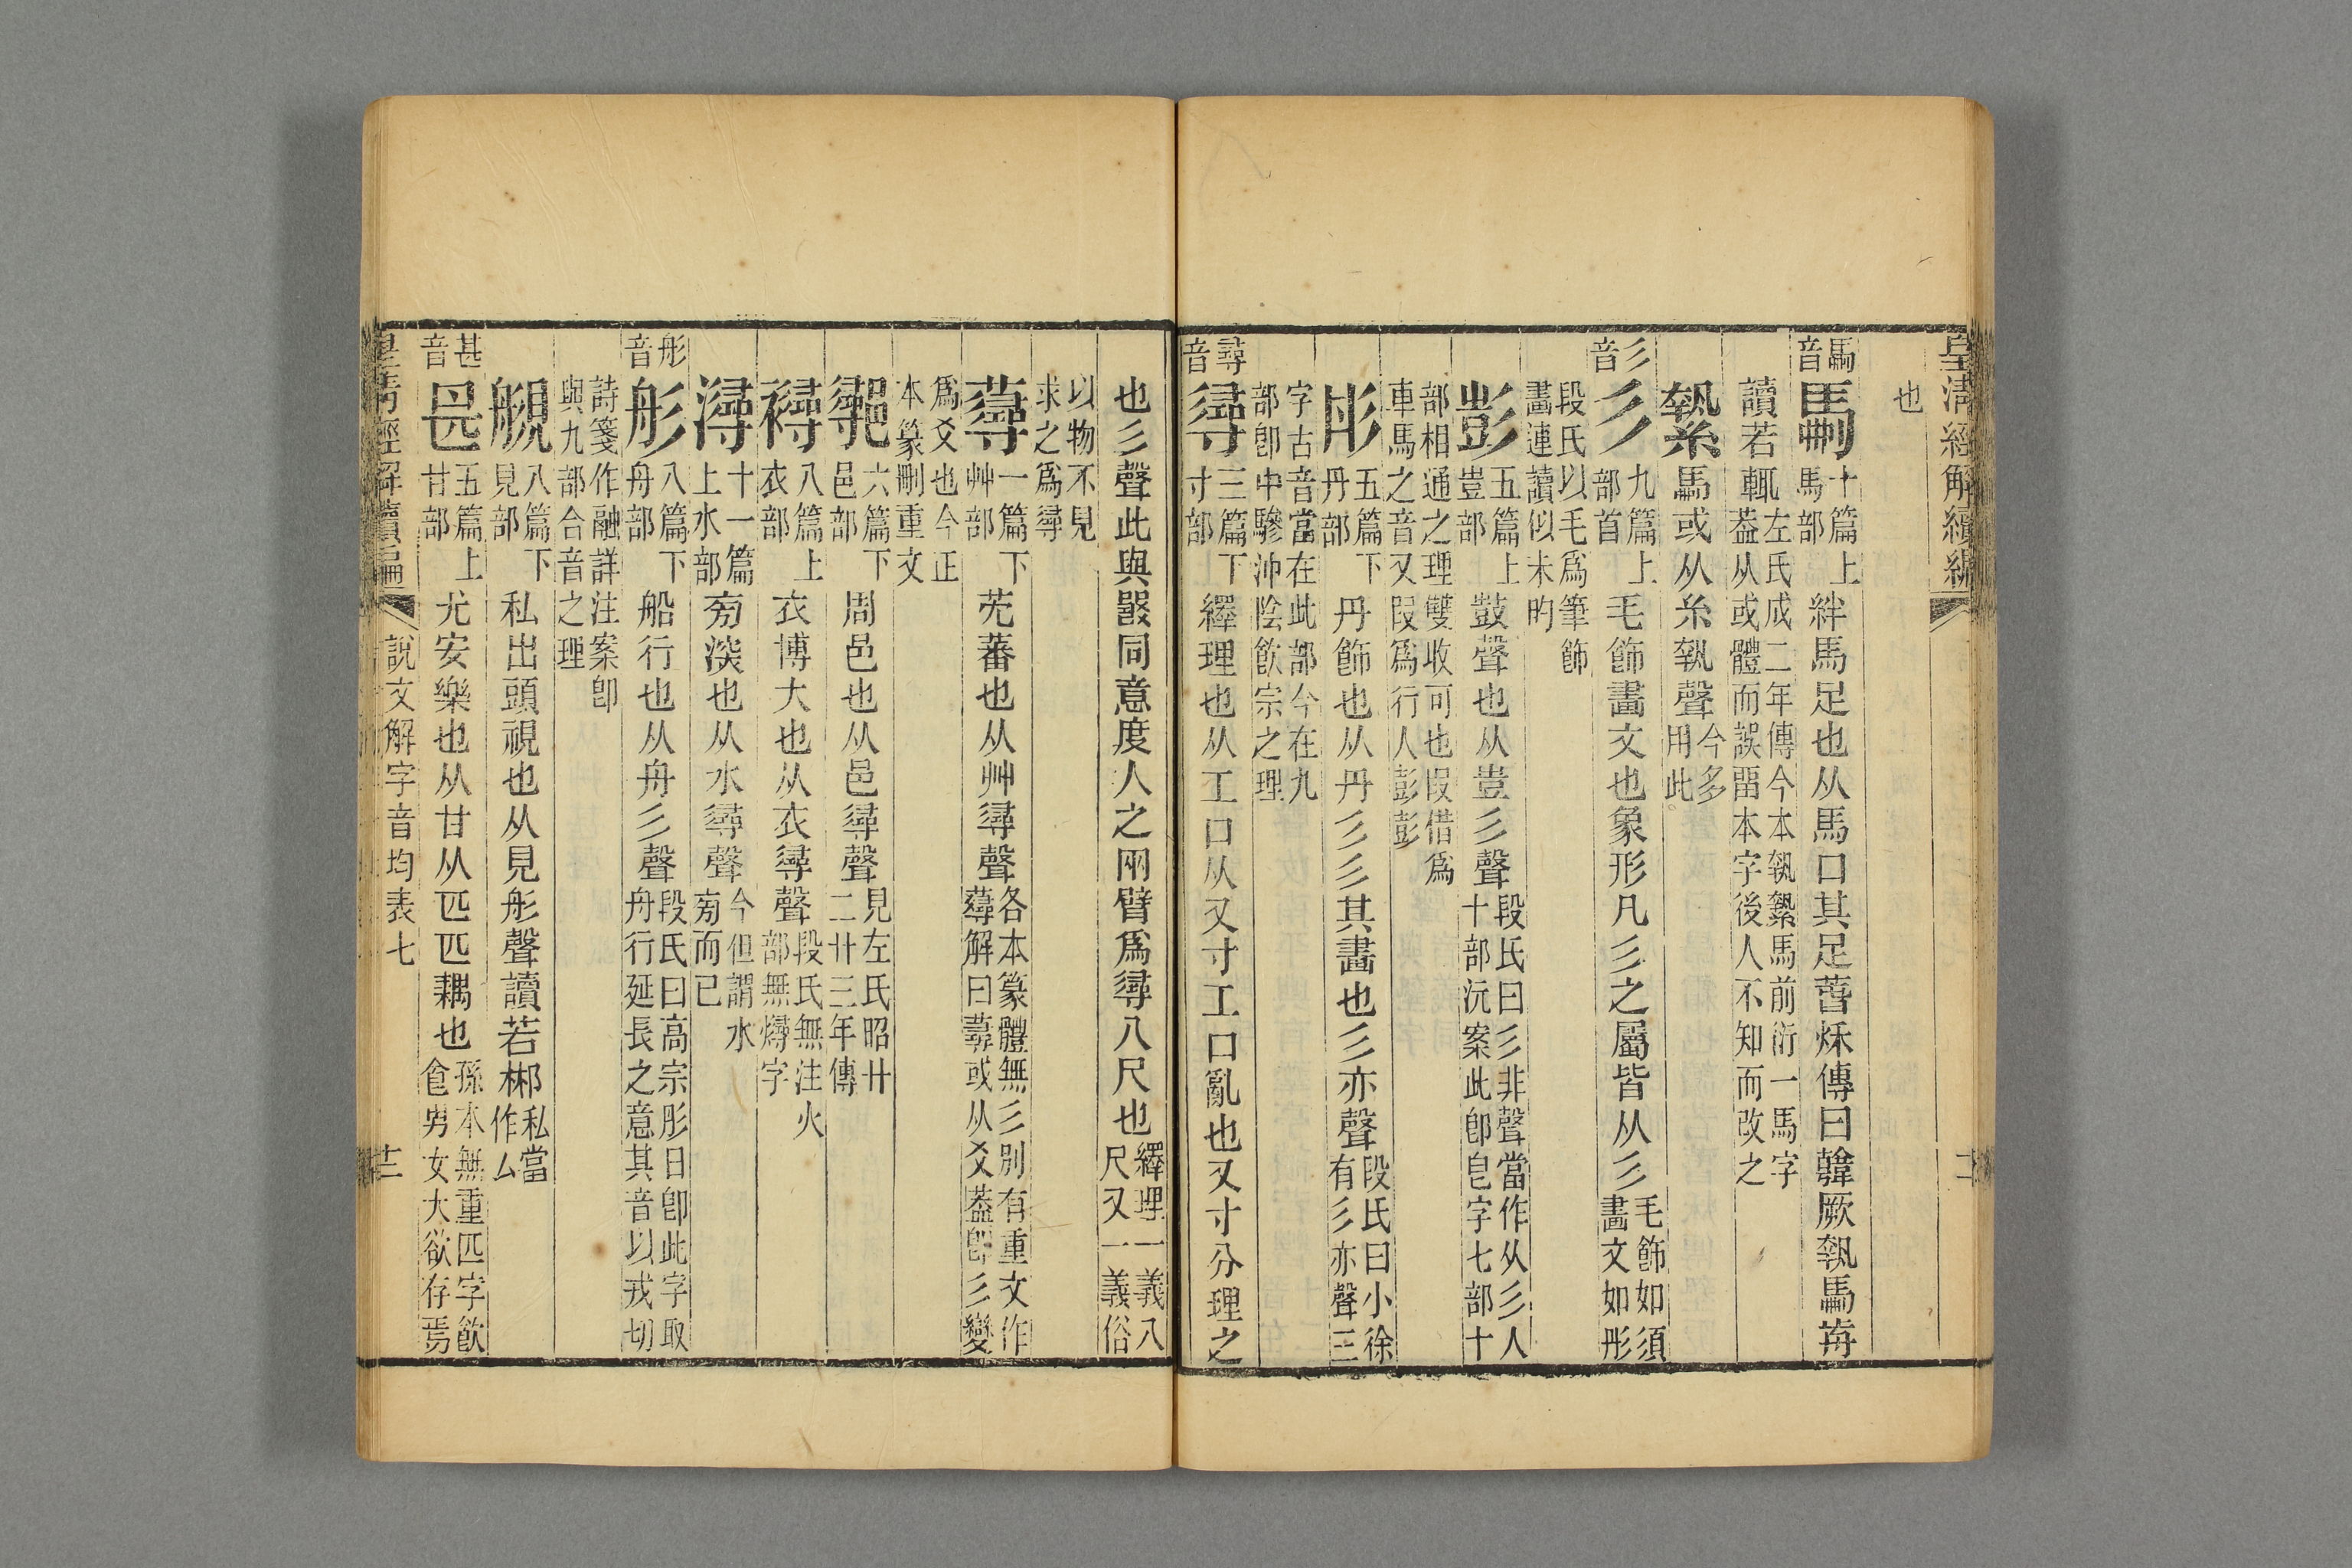 皇淸經解續編
也
馽音 馽 十篇上馬部 絆馬足也从馬口其足萅秌傳曰韓厥執馬馽前
讀若輒 葢左氏成二年傳今本執縶馬前衍一馬字从或體而誤畱本字後人不知而改之
縶 馬或从糸執聲 今多用此
彡音 彡 九篇上部首 毛飾畫文也象形凡彡之屬皆从彡 毛飾如須畫文如彤
段氏以毛爲筆飾畫連讀似未昀
彭 五篇上壴部 鼓聲也从壴彡聲 段氏曰彡非聲當作从彡人十部沅案此卽皀字七部十
部相通之理雙收可也叚借爲車馬之音又叚爲行人彭彭
彤 五篇下丹部 丹飾也从丹彡彡其畫也彡亦聲 段氏曰小徐有彡亦聲三
字古音當在此部今在九部卽中驂沖陰飮宗之理
㝷音 㝷 三篇下寸部 繹理也从工口从又寸工口亂也又寸分理之
也彡聲此與㗊同意度人之兩臂爲㝷八尺也 繹理一義八尺又一義俗
以物不見求之爲㝷
蕁 一篇下艸部 芫蕃也从艸㝷聲 各本篆體無彡別有重文作蕁解曰蕁或从爻葢卽彡變
爲爻也今正本篆刪重文
鄩 六篇下邑部 周邑也从邑㝷聲 見左氏昭廿二廿三年傳
襑 八篇上衣部 衣博大也从衣㝷聲 段氏無注火部無燖字
潯 十一篇上水部 㫄深也从水㝷聲 今但謂水㫄而已
彤音 彤 八篇下舟部 船行也从舟彡聲 段氏曰高宗肜日卽此字取舟行延長之意其音以戎切
詩箋作融詳注案卽與九部合音之理
覢 八篇下見部 私出頭視也从見肜聲讀若郴 私當作厶
甚音 甚 五篇上甘部 尤安樂也从甘从匹匹耦也 孫本無重匹字飮食男女大欲存焉
皇淸經解續編
說文解字音均表七